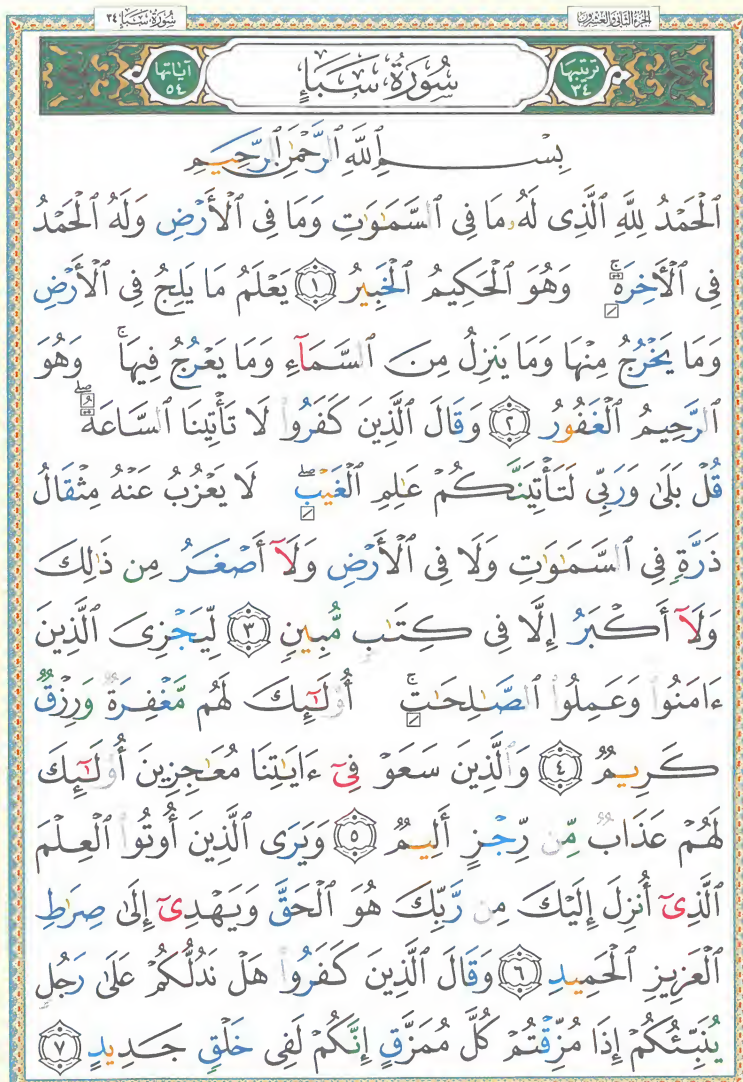 الجزء الثاني والعشرون سُورَةُ سَبَإٍ ٣٤
ترتيبها ٣٤ سُورَةُ سَبَإٍ آياتها ٥٤
بِسْمِ ٱللَّهِ ٱلرَّحْمَٰنِ ٱلرَّحِيمِ
ٱلْحَمْدُ لِلَّهِ ٱلَّذِى لَهُۥ مَا فِى ٱلسَّمَٰوَٰتِ وَمَا فِى ٱلْأَرْضِ وَلَهُ ٱلْحَمْدُ
فِى ٱلْأَخِرَةِۚ وَهُوَ ٱلْحَكِيمُ ٱلْخَبِيرُ ١ يَعْلَمُ مَا يَلِجُ فِى ٱلْأَرْضِ
وَمَا يَخْرُجُ مِنْهَا وَمَا يَنزِلُ مِنَ ٱلسَّمَآءِ وَمَا يَعْرُجُ فِيهَاۚ وَهُوَ
ٱلرَّحِيمُ ٱلْغَفُورُ ٢ وَقَالَ ٱلَّذِينَ كَفَرُوا۟ لَا تَأْتِينَا ٱلسَّاعَةُۖ
قُلْ بَلَىٰ وَرَبِّى لَتَأْتِيَنَّكُمْ عَٰلِمِ ٱلْغَيْبِۖ لَا يَعْزُبُ عَنْهُ مِثْقَالُ
ذَرَّةٍ فِى ٱلسَّمَٰوَٰتِ وَلَا فِى ٱلْأَرْضِ وَلَآ أَصْغَرُ مِن ذَٰلِكَ
وَلَآ أَكْبَرُ إِلَّا فِى كِتَٰبٍ مُّبِينٍ ٣ لِّيَجْزِىَ ٱلَّذِينَ
ءَامَنُوا۟ وَعَمِلُوا۟ ٱلصَّٰلِحَٰتِۚ أُو۟لَٰٓئِكَ لَهُم مَّغْفِرَةٌ وَرِزْقٌ
كَرِيمٌ ٤ وَٱلَّذِينَ سَعَوْ فِىٓ ءَايَٰتِنَا مُعَٰجِزِينَ أُو۟لَٰٓئِكَ
لَهُمْ عَذَابٌ مِّن رِّجْزٍ أَلِيمٌ ٥ وَيَرَى ٱلَّذِينَ أُوتُوا۟ ٱلْعِلْمَ
ٱلَّذِىٓ أُنزِلَ إِلَيْكَ مِن رَّبِّكَ هُوَ ٱلْحَقَّ وَيَهْدِىٓ إِلَىٰ صِرَٰطِ
ٱلْعَزِيزِ ٱلْحَمِيدِ ٦ وَقَالَ ٱلَّذِينَ كَفَرُوا۟ هَلْ نَدُلُّكُمْ عَلَىٰ رَجُلٍ
يُنَبِّئُكُمْ إِذَا مُزِّقْتُمْ كُلَّ مُمَزَّقٍ إِنَّكُمْ لَفِى خَلْقٍ جَدِيدٍ ٧